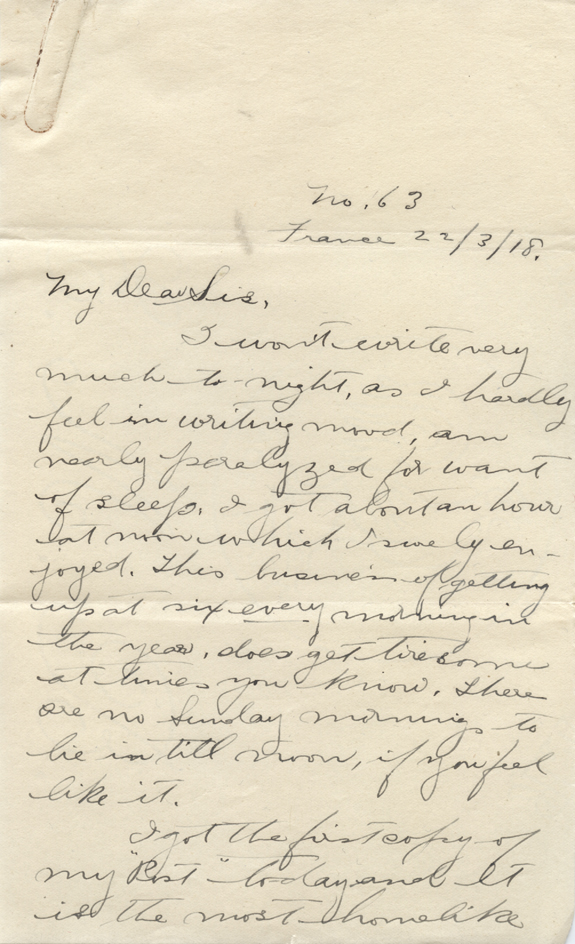 No. 63
France 22/3/18.
My Dear Sis,
I won't write very
much to-night, as I hardly
feel in writing mood, am
nearly paralyzed for want
of sleep. I got about an hour
at noon which I surely en-
joyed. This business of getting
up at six every morning in
the year, does get tiresome
at times you know. There
are no Sunday mornings to
lie in till noon, if you feel
like it.
I got the first copy of
my "Post" to-day and It
is the most homelike